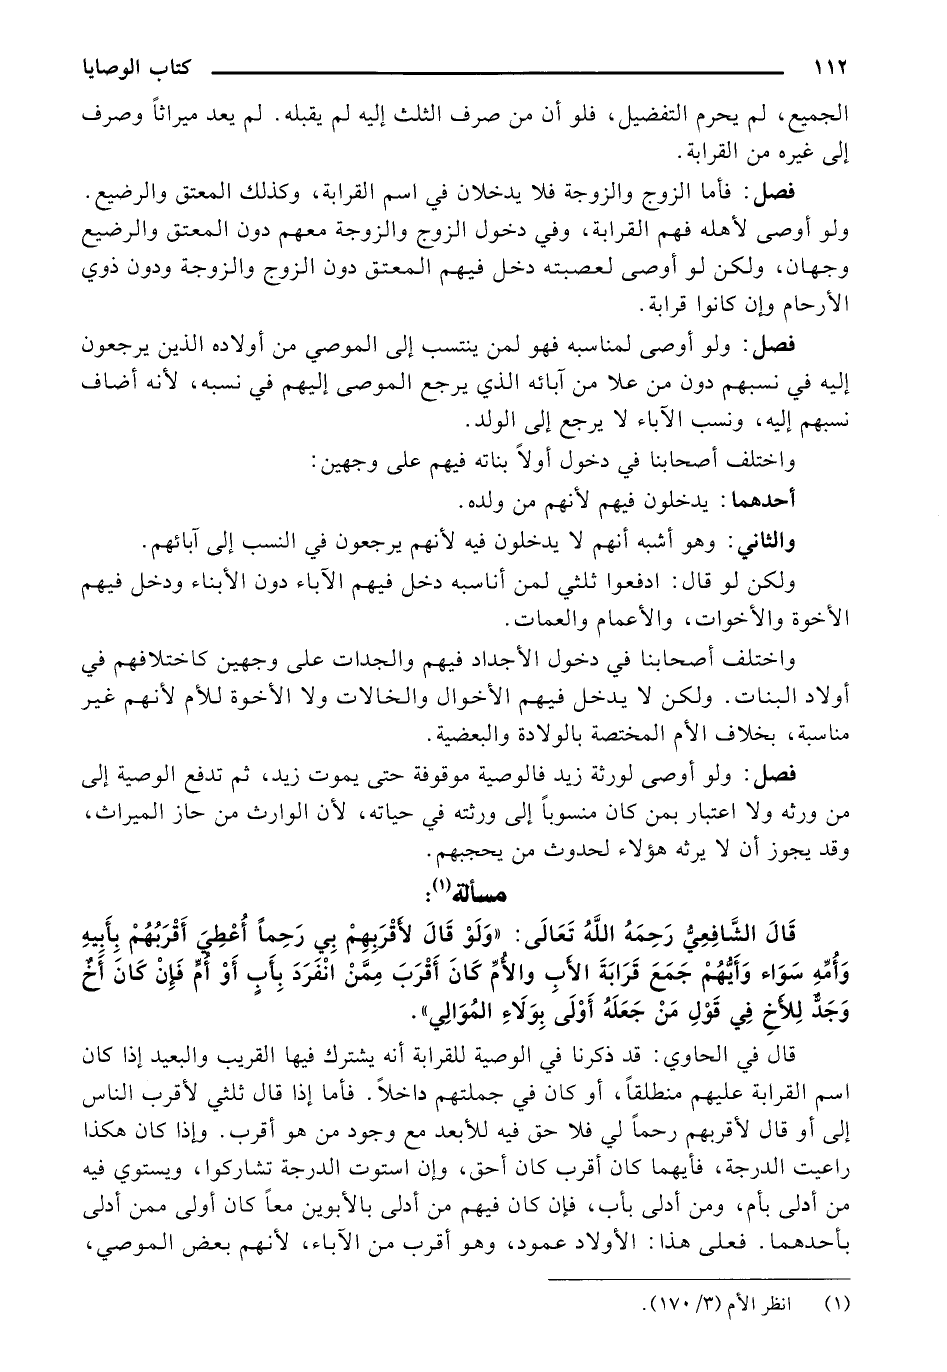 ١١٢ كتاب الوصايا
الجميع، لم يحرم التفضيل، فلو أن من صرف الثلث إليه لم يقبله. لم يعد ميراثاً وصرف
إلى غيره من القرابة.
فصل: فأما الزوج والزوجة فلا يدخلان في اسم القرابة، وكذلك المعتق والرضيع.
ولو أوصى لأهله فهم القرابة، وفي دخول الزوج والزوجة معهم دون المعتق والرضيع
وجهان، ولكن لو أوصى لعصبته دخل فيهم المعتق دون الزوج والزوجة ودون ذوي
الأرحام وإن كانوا قرابة.
فصل: ولو أوصى لمناسبه فهو لمن ينتسب إلى الموصي من أولاده الذين يرجعون
إليه في نسبهم دون من علا من آبائه الذي يرجع الموصى إليهم في نسبه، لأنه أضاف
نسبهم إليه، ونسب الآباء لا يرجع إلى الولد.
واختلف أصحابنا في دخول أولاً بناته فيهم على وجهين:
أحدهما: يدخلون فيهم لأنهم من ولده.
والثاني: وهو أشبه أنهم لا يدخلون فيه لأنهم يرجعون في النسب إلى آبائهم.
ولكن لو قال: ادفعوا ثلثي لمن أناسبه دخل فيهم الآباء دون الأبناء ودخل فيهم
الأخوة والأخوات، والأعمام والعمات.
واختلف أصحابنا في دخول الأجداد فيهم والجدات على وجهين كاختلافهم في
أولاد البنات. ولكن لا يدخل فيهم الأخوال والخالات ولا الأخوة للأم لأنهم غير
مناسبة، بخلاف الأم المختصة بالولادة والبعضية.
فصل: ولو أوصى لورثة زيد فالوصية موقوفة حتى يموت زيد، ثم تدفع الوصية إلى
من ورثه ولا اعتبار بمن كان منسوباً إلى ورثته في حياته، لأن الوارث من حاز الميراث،
وقد يجوز أن لا يرثه هؤلاء لحدوث من يحجبهم.
مسألة(١):
قَالَ الشَّافِعِيُّ رَحِمَهُ اللَّهُ تَعَالَى: «وَلَوْ قَالَ لأَقْرَبِهِمْ بِي رَحِماً أُعْطِيَ أَقْرَبُهُمْ بِأَبِيهِ
وَأُمِّهِ سَوَاء وَأَيُّهُمْ جَمَعَ قَرَابَةَ الأَبِ والأُمِّ كَانَ أَقْرَبَ مِمَّنْ انْفَرَدَ بِأَبٍ أَوْ أُمٍّ فَإِنْ كَانَ أَخٌ
وَجَدٌّ لِلأَخِ فِي قَوْلِ مَنْ جَعَلَهُ أَوْلَى بِوَلَاءِ المُوَالِي».
قال في الحاوي: قد ذكرنا في الوصية للقرابة أنه يشترك فيها القريب والبعيد إذا كان
اسم القرابة عليهم منطلقاً، أو كان في جملتهم داخلاً. فأما إذا قال ثلثي لأقرب الناس
إلى أو قال لأقربهم رحماً لي فلا حق فيه للأبعد مع وجود من هو أقرب. وإذا كان هكذا
راعيت الدرجة، فأيهما كان أقرب كان أحق، وإن استوت الدرجة تشاركوا، ويستوي فيه
من أدلى بأم، ومن أدلى بأب، فإن كان فيهم من أدلى بالأبوين معاً كان أولى ممن أدلى
بأحدهما. فعلى هذا: الأولاد عمود، وهو أقرب من الآباء، لأنهم بعض الموصي،
(١) انظر الأم (٣/ ١٧٠).